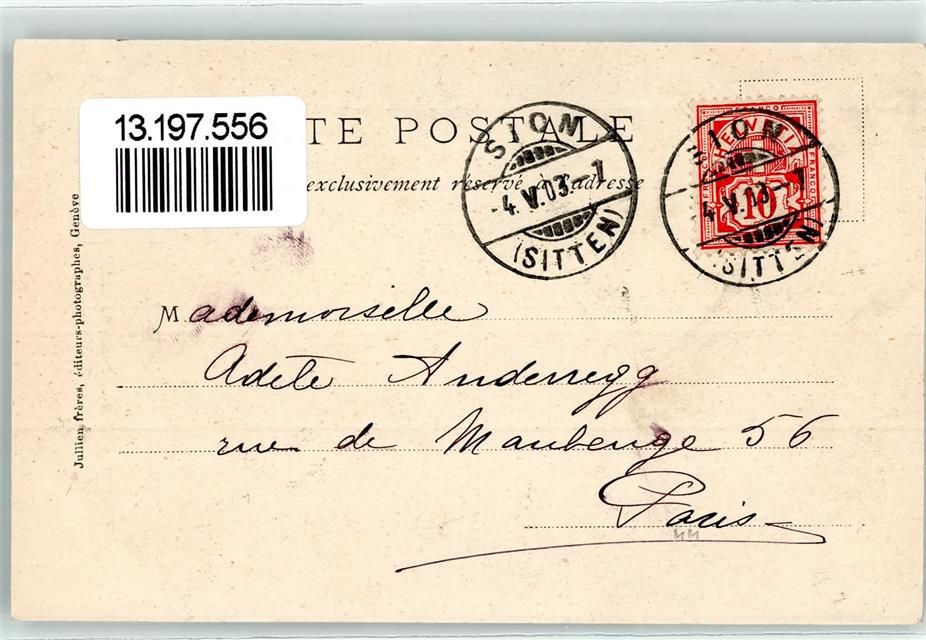 13.197.556
TE POSTALE
exclusivement réservé à l'adresse
SION
4.V.03.-7
(SITTEN)
SION
4.V.03.-7
(SITTEN)
HELVETIA
FRANCO
10
Jullien frères, éditeurs-photographes, Genève
Mademoiselle
Adete Anderregg
rue de Maubeuge 56
Paris